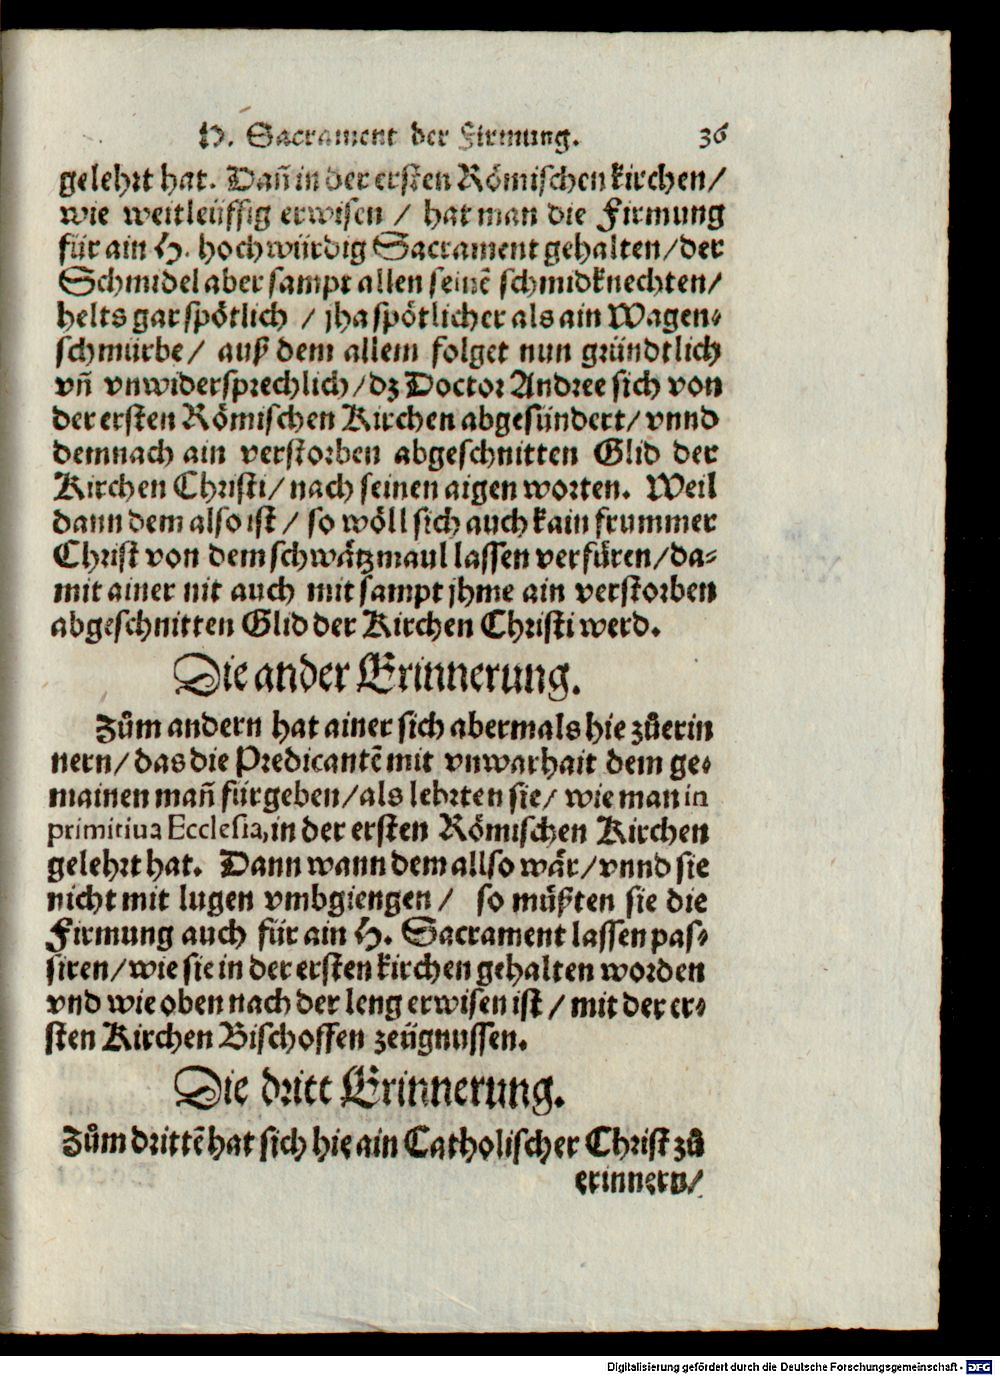 H. Sacrament der Firmung. 36
gelehrt hat. Dañ in der ersten Römischen kirchen/
wie weitleüffig erwisen / hat man die Firmung
für ain H. hochwürdig Sacrament gehalten/der
Schmidel aber sampt allen seinē schmidknechten/
helts gar spötlich / jha spötlicher als ain Wagen-
schmürbe/ auß dem allem folget nun gründtlich
vñ vnwidersprechlich/dz Doctor Andree sich von
der ersten Römischen Kirchen abgesündert/ vnnd
demnach ain verstorben abgeschnitten Glid der
Kirchen Christi/ nach seinen aigen worten. Weil
dann dem also ist / so wöll sich auch kain frummer
Christ von dem schwätzmaul lassen verfüren/da-
mit ainer nit auch mit sampt jhme ain verstorben
abgeschnitten Glid der Kirchen Christi werd.
Die ander Erinnerung.
Zům andern hat ainer sich abermals hie zůerin
nern/ das die Predicantē mit vnwarhait dem ge-
mainen mañ fürgeben/als lehrten sie/ wie man in
primitiua Ecclesia, in der ersten Römischen Kirchen
gelehrt hat. Dann wann dem allso wär/ vnnd sie
nicht mit lugen vmbgiengen / so müßten sie die
Firmung auch für ain H. Sacrament lassen pas-
siren/ wie sie in der ersten kirchen gehalten worden
vnd wie oben nach der leng erwisen ist / mit der er-
sten Kirchen Bischoffen zeügnussen.
Die dritt Erinnerung.
Zům drittē hat sich hie ain Catholischer Christ zů
erinnern/
Digitalisierung gefördert durch die Deutsche Forschungsgemeinschaft - DFG